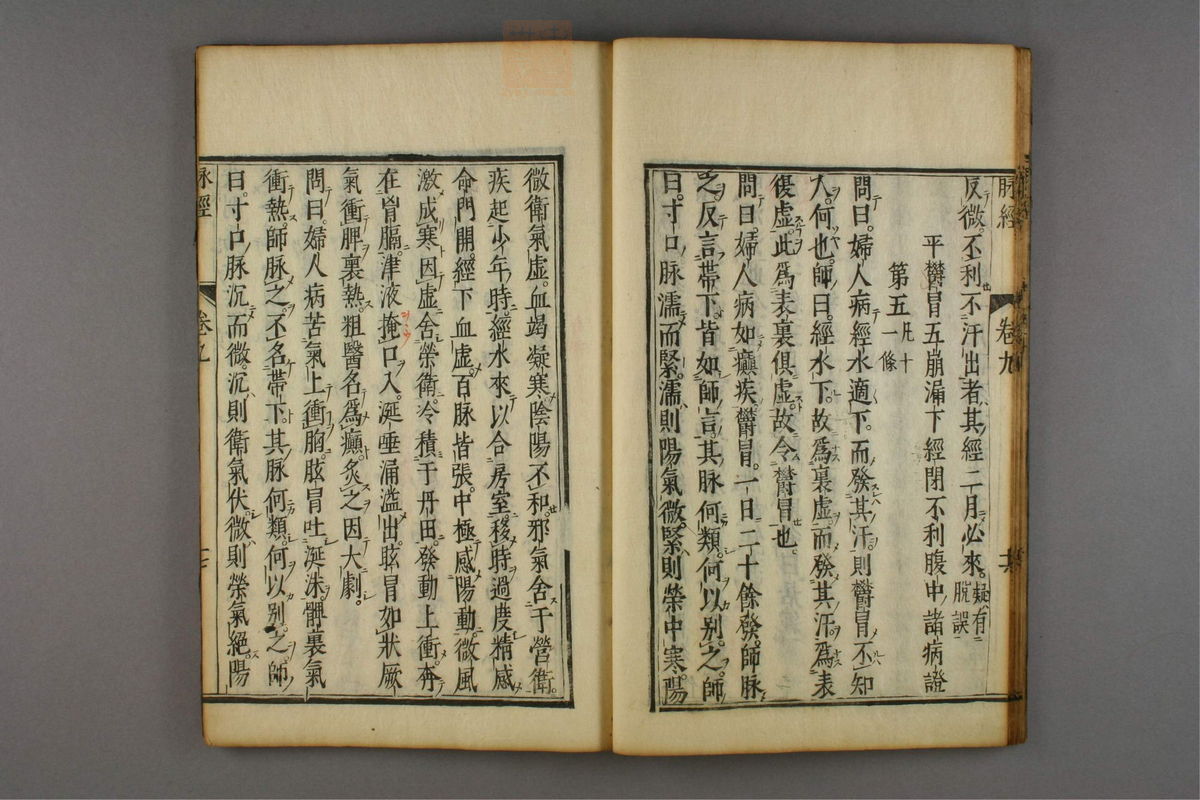 脉經
卷九
反微。不利不汗出者。其經二月必來。疑有脫誤
平欝冒五崩漏下經閉不利腹中諸病證
第五凡十一條
問曰。婦人病經水適下。而發其汗。則欝冒不知
人。何也。師曰。經水下。故爲裏虛。而發其汗。爲表
復虛。此爲表裏俱虛。故令欝冒也。
問曰。婦人病如癲疾欝冒。一日二十餘發。師脉
之。反言帶下。皆如師言。其脉何類。何以別之。師
曰。寸口脉濡而緊。濡則陽氣微。緊則榮中寒。陽
微衛氣虛。血竭凝寒。陰陽不和。邪氣舍于營衛。
疾起少年時。經水來以合房室。移時過度。精感
命門開。經下血虛。百脉皆張。中極感陽動。微風
激成寒。因虛舍榮衛。冷積于丹田。發動上衝。奔
在胷膈。津液掩口入。涎唾涌溢出。眩冒如狀厥
氣衝髀裏熱。粗醫名爲癲。灸之因大劇。
問曰。婦人病苦氣上衝胸。眩冒吐涎沫。髀裏氣
衝熱。師脉之。不名帶下。其脉何類。何以別之。師
曰。寸口脉沉而微。沉則衛氣伏。微則榮氣絕。陽
脉經
卷九